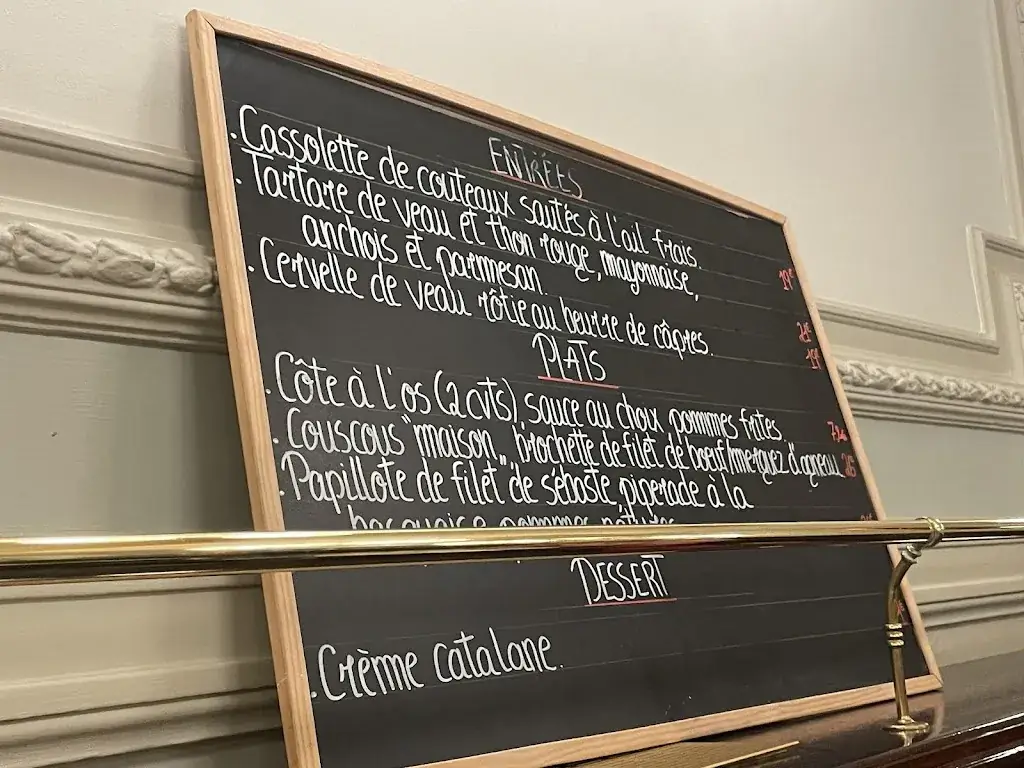 ENTRÉES
. Cassolette de couteaux sautés à l'ail frais.
. Tartare de veau et thon rouge, mayonnaise,
anchois et parmesan.
. Cervelle de veau rôtie au beurre de câpres.
PLATS
. Côte à l'os (2 cvts), sauce au choix pommmes frites.
. Couscous "maison", brochette de filet de boeuf/merguez d'agneau
. Papillote de filet de sébaste, piperade à la
DESSERT
. Crème catalane.